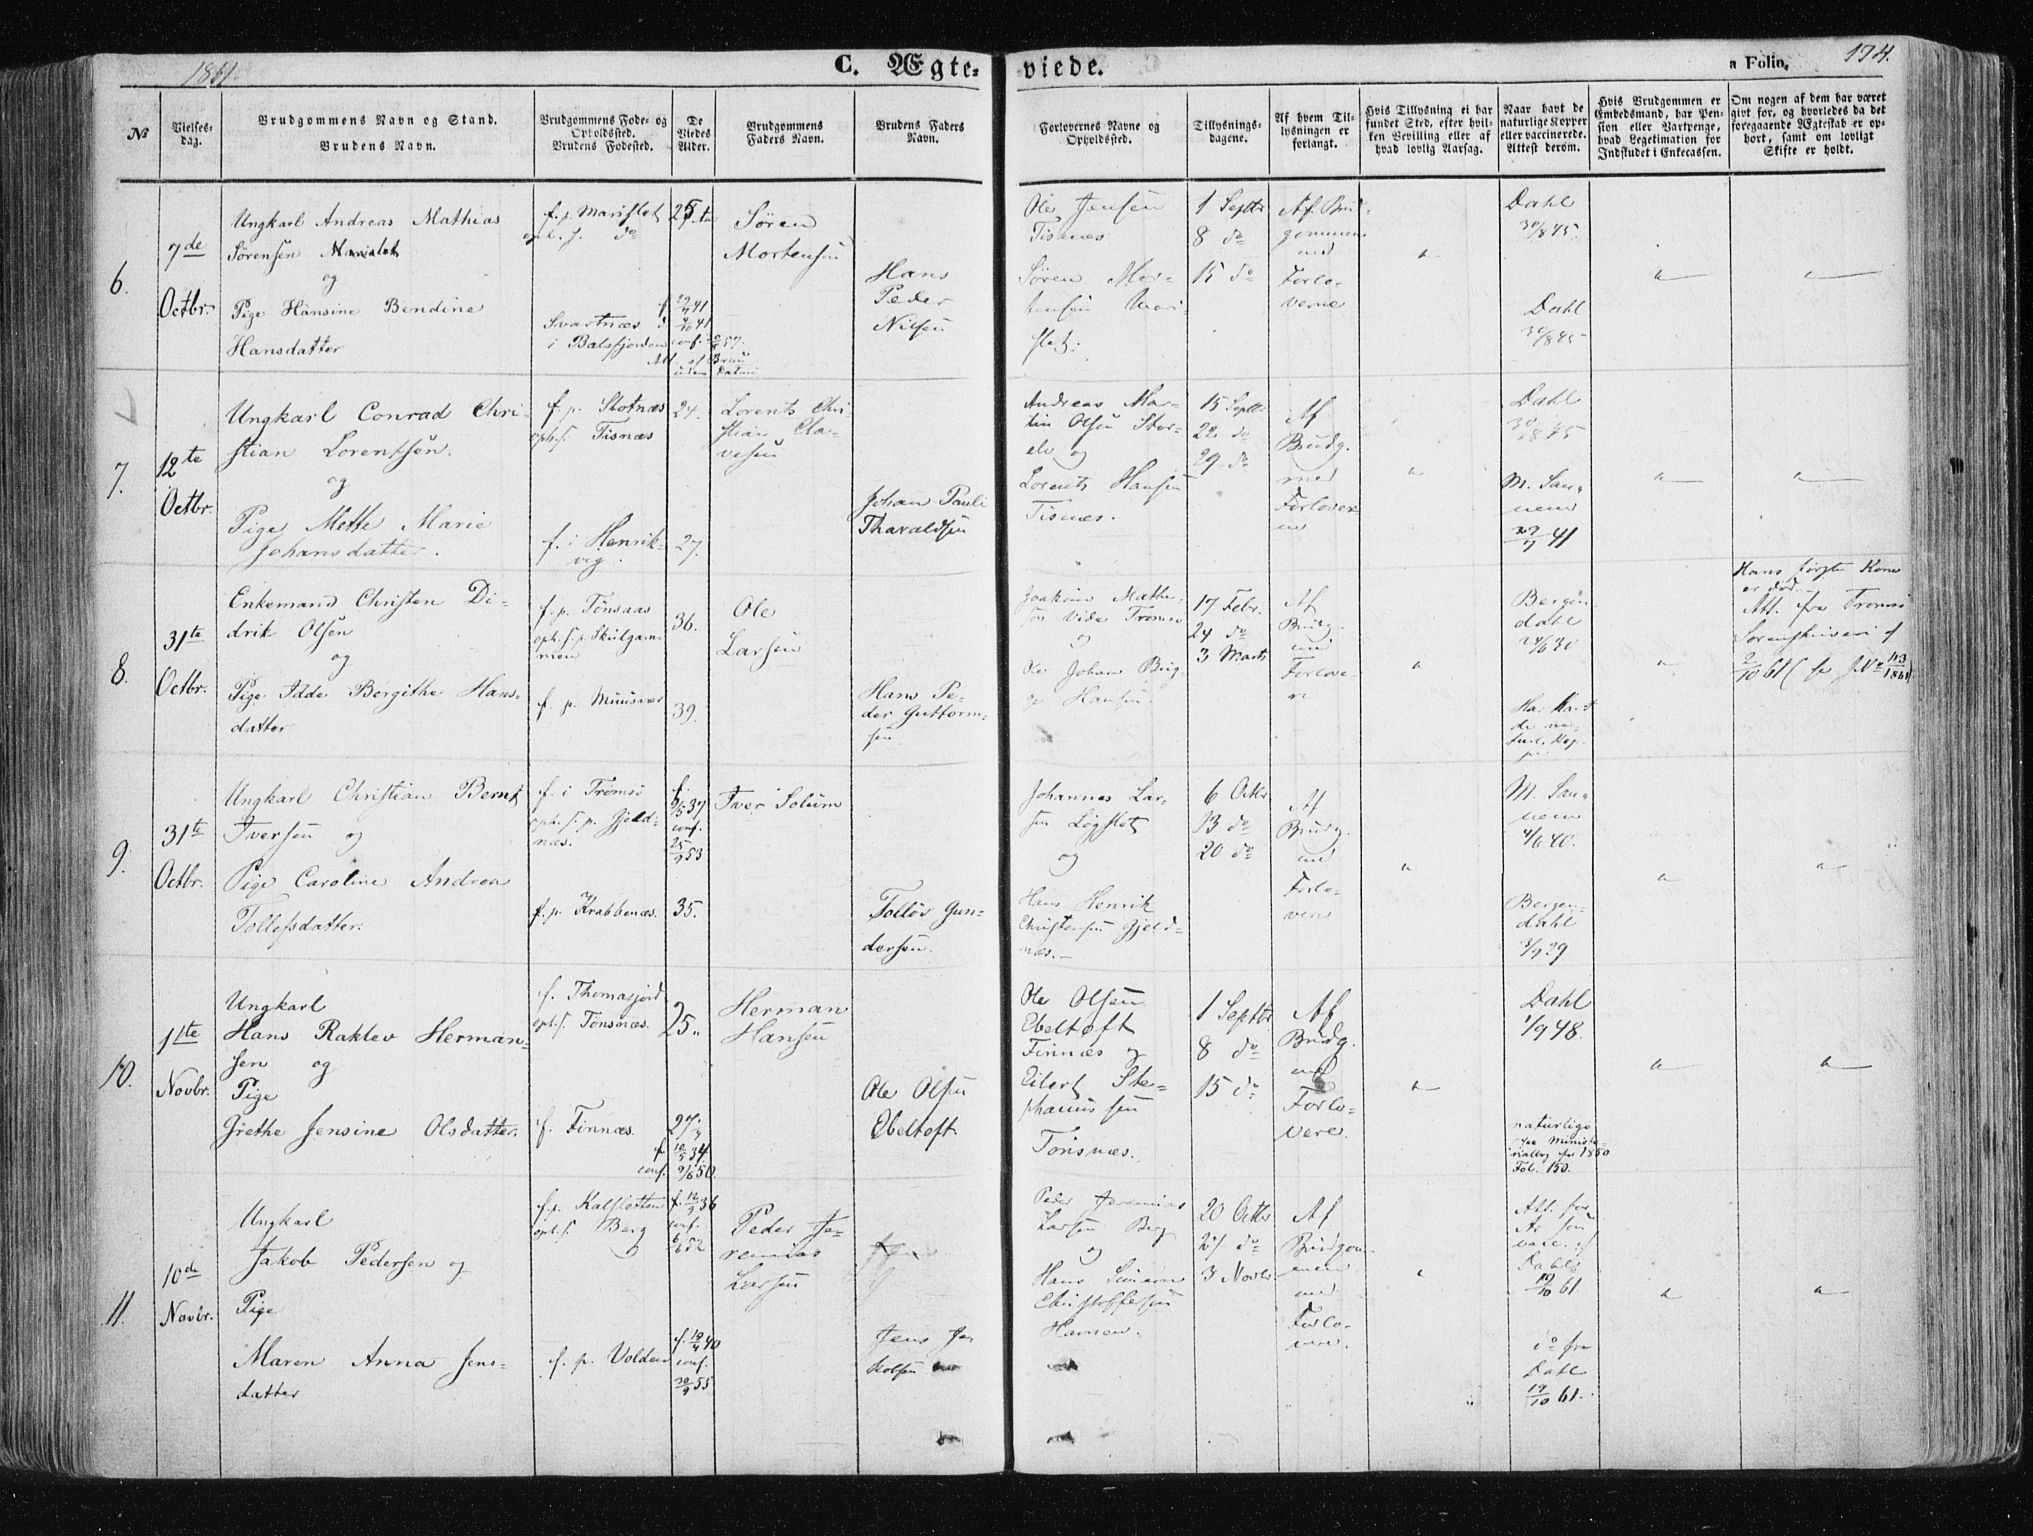 1861.
C. Ægte=
viede.
a Folio.
174.
№
Vielses-
dag.
Brudgommens Navn og Stand.
Brudens Navn.
Brudgommens Føde- og
Opholdssted.
Brudens Fødested.
De
Viedes
Alder.
Brudgommens
Faders Navn.
Brudens Faders
Navn.
Forlovernes Navne og
Opholdssted.
Tillysnings-
dagene.
Af hvem Til-
lysningen er
forlangt.
Hvis Tillysning ei har
fundet Sted, efter hvil-
ken Bevilling eller af
hvad lovlig Aarsag.
Naar havt de
naturlige Kopper
eller vaccinerede.
Attest derom.
Hvis Brudgommen er
Embedsmand, har Pen-
sion eller Vartpenge,
hvad Legitimation for
Indskudet i Enkecassen.
Om nogen af dem har været
givt før, og hvorledes da det
foregaaende Ægteskab er op-
hørt, samt om lovligt
Skifte er holdt.
6.
7de
Octbr.
Ungkarl Andreas Mathias
Sørensen
og
Pige Hansine Bendine
Hansdatter
f. p. Marislet
oph. s. do
Svartnæs
i Balsfjorden
Søren
Mortensen
Hans
Peder
Nilsen
Ole Jensen
Tisnæs
Søren Mor-
tensen Mari
slet.
1 Septbr
8 do
15 do
Af Brud-
gommen
med
Forlo-
verne
Dahl
30/8 45.
Dahl
30/8 45
7.
12te
Octbr.
Ungkarl Conrad Chri-
stian Lorentsen.
og
Pige Mette Marie
Johansdatter.
f. p. Slotnæs
oph. s. Tisnæs
f. i Henrik-
vig.
24.
27.
Lorents Chri
stian Cla-
vesen
Johan Pauli
Tharaldsen
Andreas Mar-
tin Olsen Stor-
elv og
Lorents Hansen
Tisnæs.
15 Septbr
22 do
29 do
Af
Brudg.
med
Forlover
ne
Dahl
30/8 45
M. San-
nem
29/7 41
8.
31te
Octbr.
Enkemand Christen Di-
drik Olsen
og
Pige Adde Bergithe Hans-
datter
f. p. Tønsaas
oph. s. p. Skulgam-
men
f. p. Muusvær
36.
39.
Ole
Larsen
Hans Pe-
der Guttorm-
sen
Joakim Mathe-
sen Tromsø
og
Ole Johan Brig-
Hansen.
17 Febr.
24 do
3 Marts
Af
Brudg.
med
Forlove-
re
Bergen-
dahl
24/6 30
Har havt
de na-
turl. Kop-
per
Hans første Kone
er død.
Att. fra Tromsø
Sorenskriveri af
2/10 61
9.
31te
Octbr.
Ungkarl Christian Bernt
Iversen og
Pige Caroline Andrea
Tollefsdatter.
f. i Tromsø
oph. s. p. Gjeld-
næs.
f. p. Krabbenæs.
conf.
25/9 53
35.
Iver Solum
Tolløv Gun-
dersen.
Johannes Lar-
sen Løgslet
og
Hans Henrik
Christensen Gjeld-
næs.
6 Octbr
13 do
20 do
Af
Brudg.
med
Forlo-
vere
M. San-
nem
4/6 40.
Bergen-
dahl
3/9 29
10.
1ste
Novbr.
Ungkarl
Hans Raklev Herman-
sen og
Pige
Grethe Jensine Olsdatter.
f. Thomasjord
oph. s. Tønsnæs.
f. Finnæs.
25
Herman
Hansen
Ole Olsen
Ebeltoft.
Ole Olsen
Ebeltoft
Finnæs og
Eilert Ste-
phanussen
Tønsnæs.
1 Septbr
8 do
15 do
Af
Brudg.
med
Forlo-
vere.
Dahl
1/9 48.
naturlige
1850
Fol. 150.
11.
10de
Novbr.
Ungkarl
Jakob Pedersen og
Pige
Maren Anna Jens-
datter
f. p. Kalsletten
oph. s. Berg
f. p. Volden
conf.
conf.
20/9 55
Peder Je-
remias
Larsen
Jens Ja
kobsen
Peder Jeremias
Larsen Berg
og
Hans Simon
Christoffersen
Hamnen.
20 Octbr
27 do
3 Novbr
Af
Brudgom-
men
med
Forlo-
vere.
Att. for
Dahl
19/10 61.
do fra
Dahl
19/10 61.